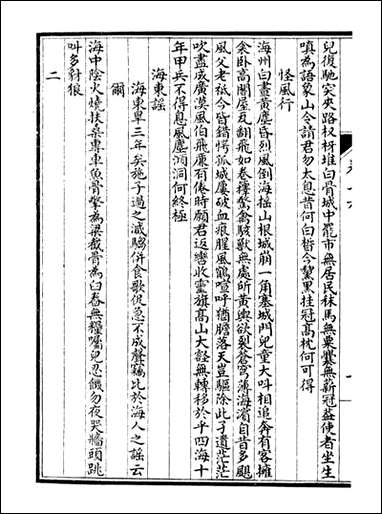 兒復馳突夾路杈枒堆白骨城中罷市無居民秣馬無粟爨無薪冠蓋使者坐生
嗔為語象山令請君勿太息昔何白皙今黧黑挂冠高枕何可得
怪風行
海州白晝黃塵昏烈風倒海揺山根城崩一角塞城門兒童大呌相追奔有客擁
衾卧高閣屋瓦翻飛如卷籜驚禽駭獸無處所黄輿欲裂蒼穹薄海濱自昔多颶
風父老祗今皆錯愕孤城屢破血痕腥風鶴喧呼猶膽落天豈驅除此孑遺茫茫
吹盡成廣漠風伯飛廉有倦時願君返轡收靈旗髙山大壑無轉移於乎四海十
年甲兵不得息風塵澒洞何終極
海東謡
海東旱三年矣施子過之減騶併食歌促急不成聲竊比於海人之謡云
爾
海中陰火燒扶桑專車魚骨擎為梁截骨為臼舂無糧囑兒忍饑勿夜哭牆頭跳
呌多豺狼
二